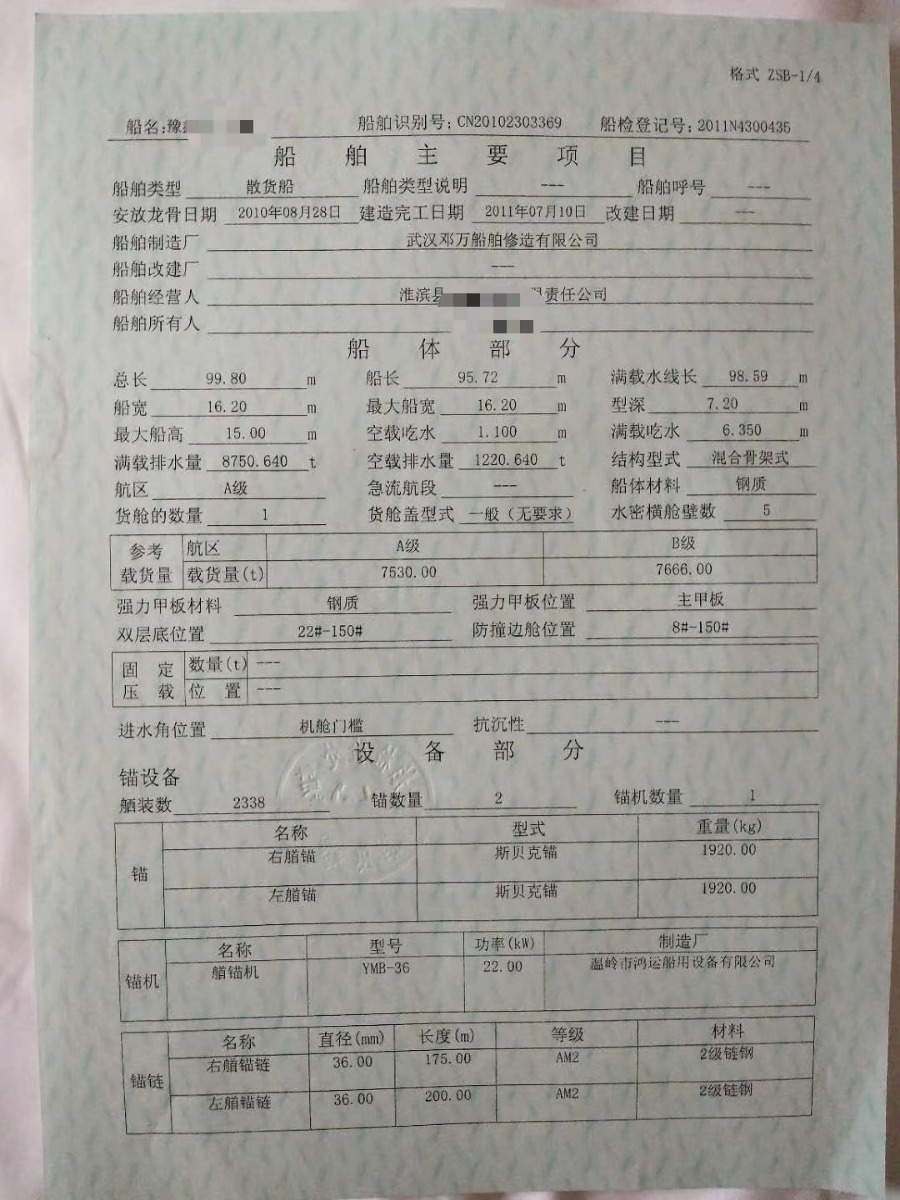 格式 ZSB-1/4
船名:豫 船舶识别号: CN20102303369 船检登记号: 2011N4300435
船 舶 主 要 项 目
船舶类型 散货船 船舶类型说明 --- 船舶呼号 ---
安放龙骨日期 2010年08月28日 建造完工日期 2011年07月10日 改建日期 ---
船舶制造厂 武汉邓万船舶修造有限公司
船舶改建厂 ---
船舶经营人 淮滨县 责任公司
船舶所有人
船 体 部 分
总长 99.80 m 船长 95.72 m 满载水线长 98.59 m
船宽 16.20 m 最大船宽 16.20 m 型深 7.20 m
最大船高 15.00 m 空载吃水 1.100 m 满载吃水 6.350 m
满载排水量 8750.640 t 空载排水量 1220.640 t 结构型式 混合骨架式
航区 A级 急流航段 --- 船体材料 钢质
货舱的数量 1 货舱盖型式 一般（无要求） 水密横舱壁数 5
参考 航区 A级 B级
载货量 载货量(t) 7530.00 7666.00
强力甲板材料 钢质 强力甲板位置 主甲板
双层底位置 22#-150# 防撞边舱位置 8#-150#
固 定 数量(t) ---
压 载 位 置 ---
进水角位置 机舱门槛 抗沉性 ---
设 备 部 分
锚设备
舾装数 2338 锚数量 2 锚机数量 1
名称 型式 重量(kg)
右艏锚 斯贝克锚 1920.00
锚
左艏锚 斯贝克锚 1920.00
名称 型号 功率(kW) 制造厂
锚机 艏锚机 YMB-36 22.00 温岭市鸿运船用设备有限公司
名称 直径(mm) 长度(m) 等级 材料
右艏锚链 36.00 175.00 AM2 2级链钢
锚链
左艏锚链 36.00 200.00 AM2 2级链钢